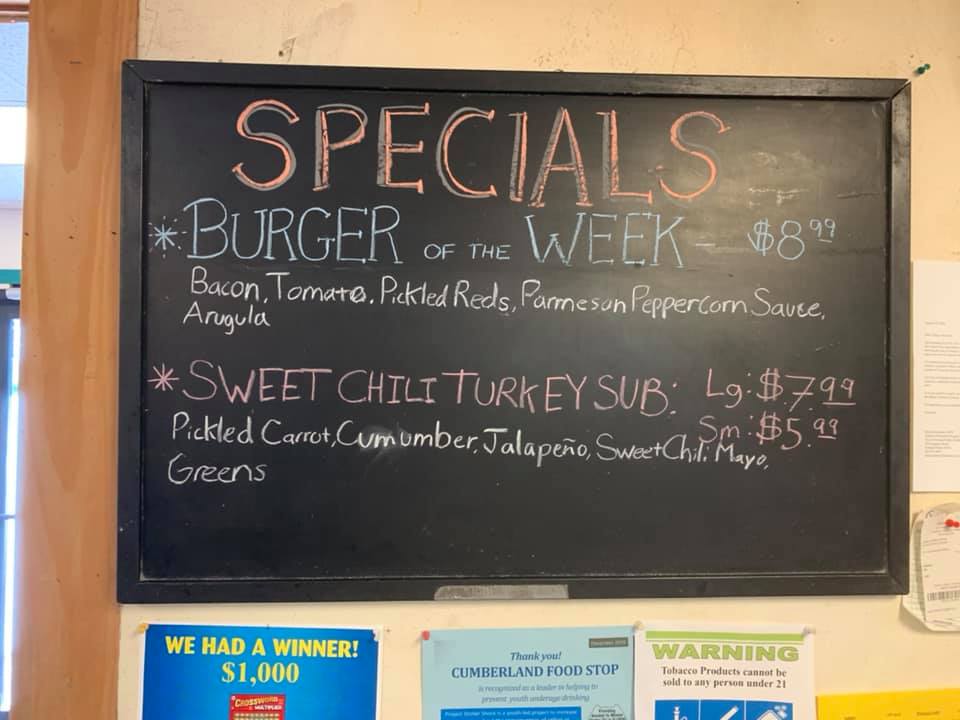 SPECIALS
* BURGER OF THE WEEK - $8.99
Bacon, Tomato, Pickled Reds, Parmesan Peppercorn Sauce,
Arugula
* SWEET CHILI TURKEY SUB: Lg: $7.99
Sm: $5.99
Pickled Carrot, Cumumber, Jalapeño, Sweet Chili Mayo,
Greens
WE HAD A WINNER!
$1,000
CROSSWORD
MULTIPLIER
Thank you!
CUMBERLAND FOOD STOP
is recognized as a leader in helping to
prevent youth underage drinking
WARNING
Tobacco Products cannot be
sold to any person under 21